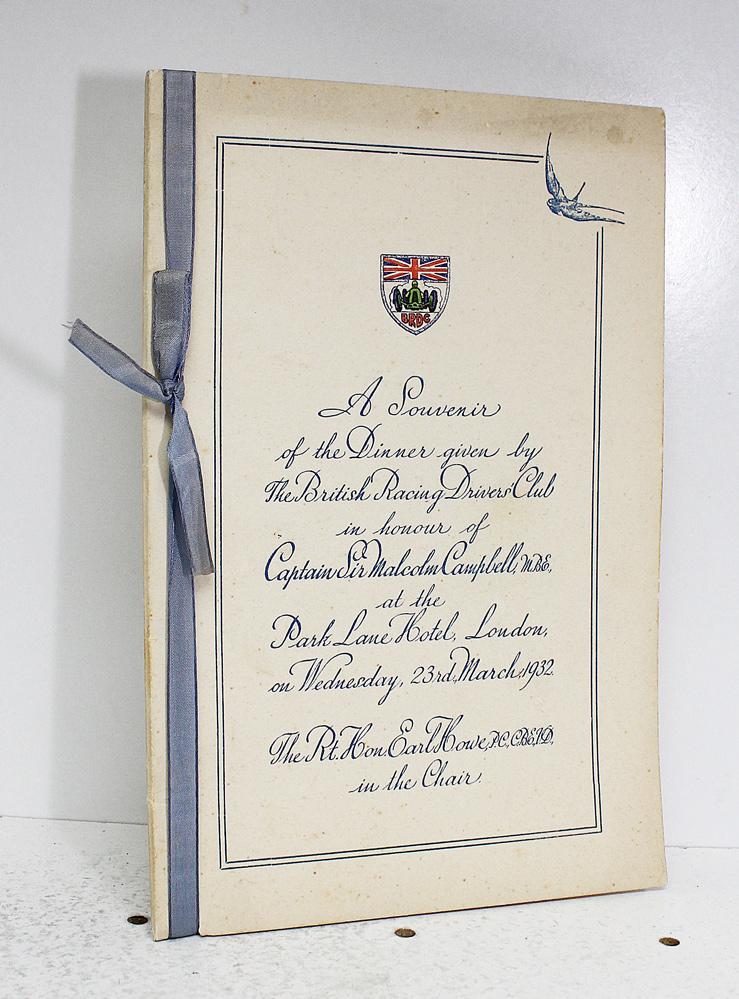 BRDC
A Souvenir
of the Dinner given by
The British Racing Drivers' Club
in honour of
Captain Sir Malcolm Campbell, M.B.E.,
at the
Park Lane Hotel, London,
on Wednesday, 23rd, March, 1932.
The Rt. Hon. Earl Howe, P.C., C.B.E., V.D.,
in the Chair.